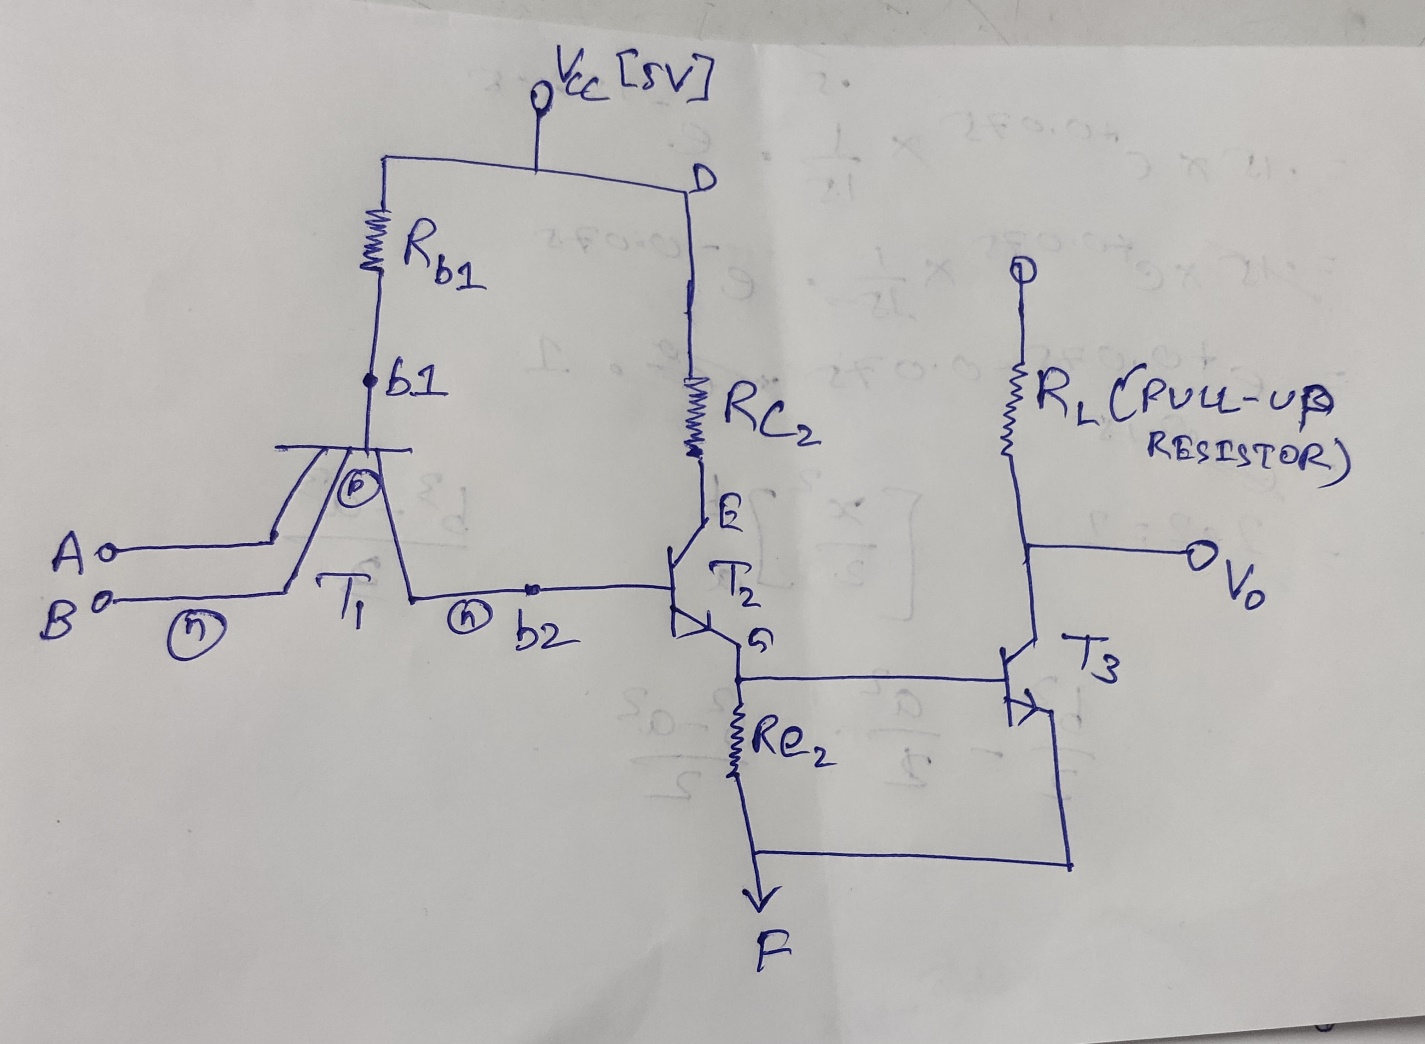 Vcc [5V]
D
Rb1
b1
RC2
RL (PULL-UP
RESISTOR)
P
E
A
T1
T2
B
n
n
b2
V0
G
T3
Re2
F